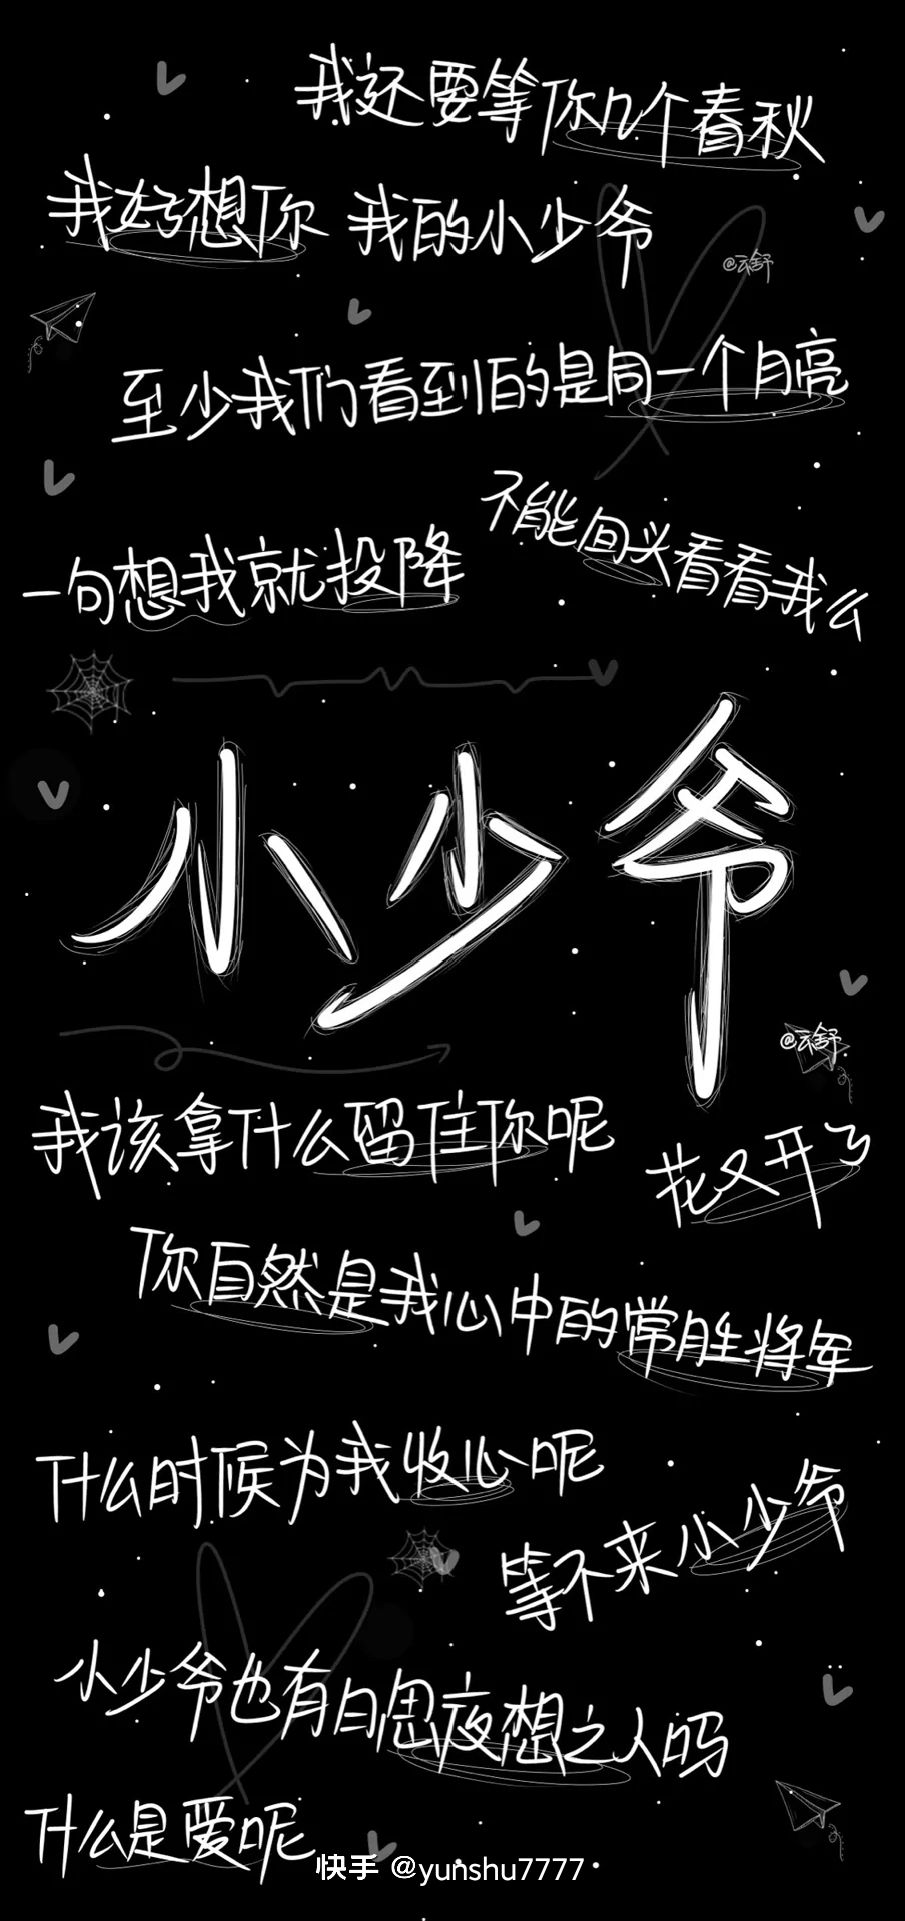 我还要等你几个春秋
我好想你 我的小少爷
@云舒
至少我们看到的是同一个月亮
不能回头看看我么
一句想我就投降
小少爷
@云舒
我该拿什么留住你呢
花又开了
你自然是我心中的常胜将军
什么时候为我收心呢
等不来小少爷
小少爷也有日思夜想之人吗
什么是爱呢
快手 @yunshu7777